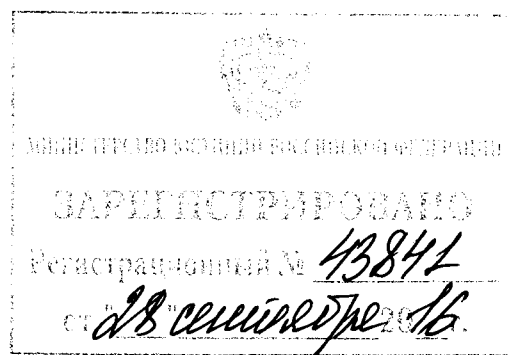 МИНИСТЕРСТВО ЮСТИЦИИ РОССИЙСКОЙ ФЕДЕРАЦИИ
ЗАРЕГИСТРИРОВАНО
Регистрационный № 43841
от "28" сентября 2016 г.